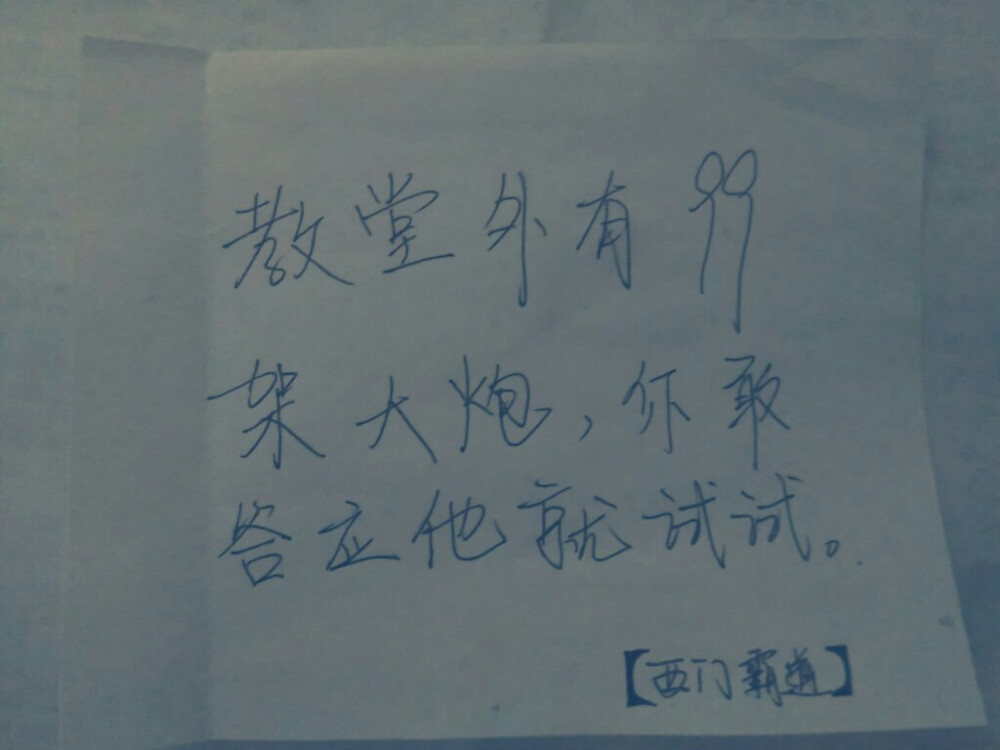 教堂外有99
架大炮,你敢
答应他就试试。
【西门霸道】